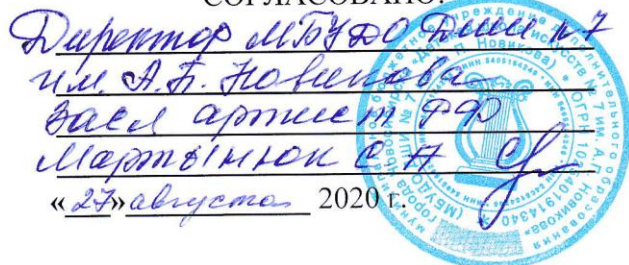 СОГЛАСОВАНО:
Директор МБУДО ДШИ №7
им. А.П. Новикова
Засл артист РФ
Мартынюк С А
«27» августа 2020 г.